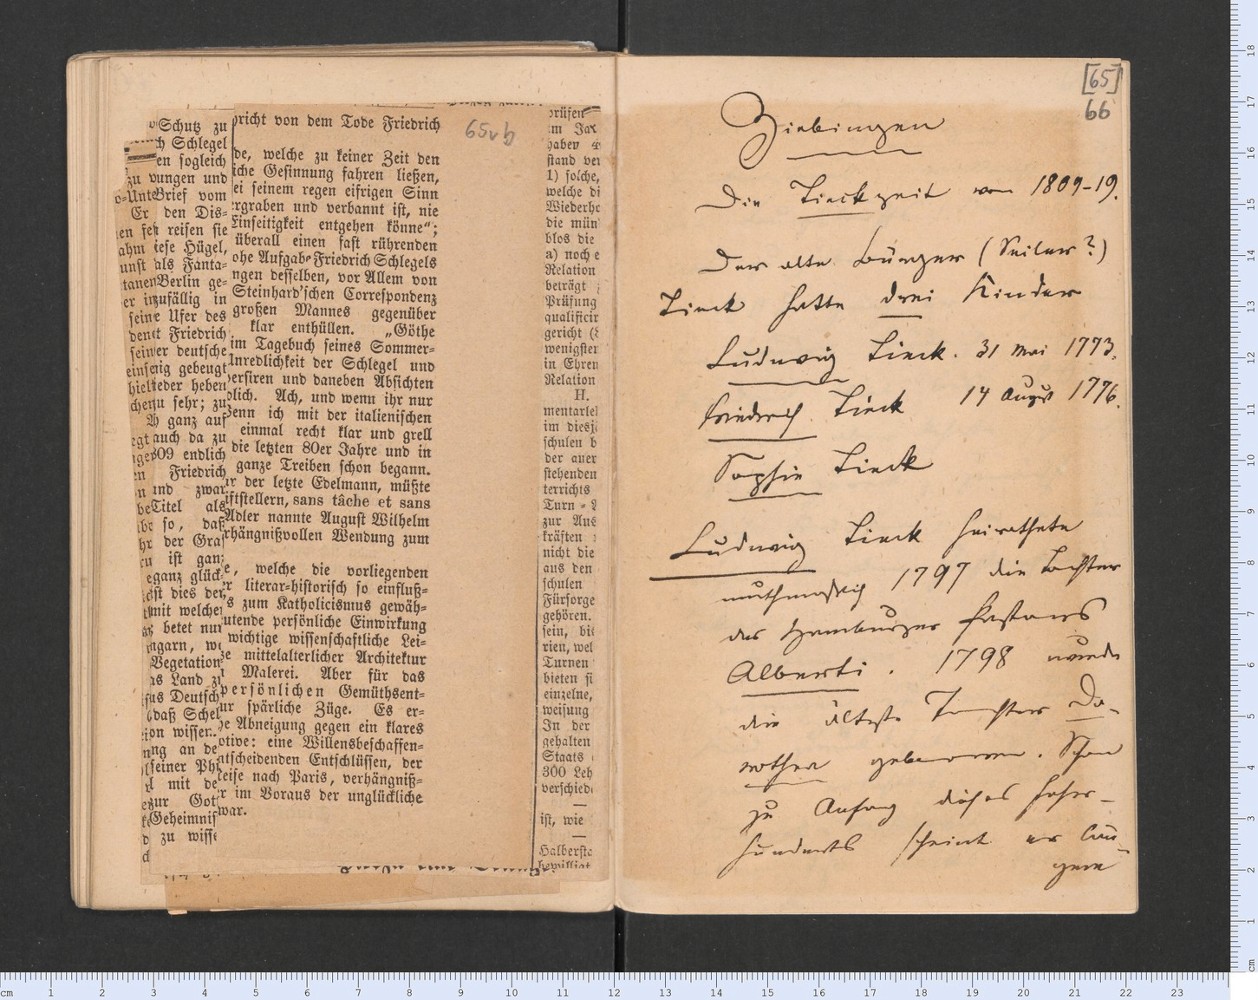 Schutz zu
h Schlegel
en sogleich
zu vungen und
o-UnteBrief vom
Er den Dis-
en fest reisen sie
ahm iese Hügel,
unst als Fanta-
tanenBerlin ge-
er inzufällig in
seine Ufer des
denst Friedrich
seinver deutsche
einsinig gebeugt
hielteder heben
chenu sehr; zu
ganz auf
egtauch da zu
ger809 endlich
en Friedrich
n und zwar
beTitel als
so, daß
hr der Gra
en ist gan
eganz glück
ist dies der
mit welche
betet nur
ngarn, w
Vegetation
as Land z
us Deutsch
daß Schel
ion wissen.
ng an de
seiner Ph
mit de
zur Got
Geheimnis
zu wisse
pricht von dem Tode Friedrich
de, welche zu keiner Zeit den
iche Gesinnung fahren ließen,
ei seinem regen eifrigen Sinn
ergraben und verbannt ist, nie
Einseitigkeit entgehen könne“;
überall einen fast rührenden
ohe Aufgabe Friedrich Schlegels
ngen desselben, vor Allem von
Steinhard'schen Correspondenz
großen Mannes gegenüber
klar enthüllen. „Göthe
im Tagebuch seines Sommer-
Unredlichkeit der Schlegel und
versiren und daneben Absichten
olich. Ach, und wenn ihr nur
Denn ich mit der italienischen
einmal recht klar und grell
die letzten 80er Jahre und in
ganze Treiben schon begann.
r der letzte Edelmann, müßte
iftstellern, sans tâche et sans
Adler nannte August Wilhelm
rhängnißvollen Wendung zum
e, welche die vorliegenden
r literar-historisch so einfluß-
s zum Katholicismus gewäh-
utende persönliche Einwirkung
wichtige wissenschaftliche Lei-
ze mittelalterlicher Architektur
Malerei. Aber für das
persönlichen Gemüthsent-
ur spärliche Züge. Es er-
e Abneigung gegen ein klares
otive: eine Willensbeschaffen-
ntscheidenden Entschlüssen, der
eise nach Paris, verhängniß-
r im Voraus der unglückliche
war.
65vb
prüfen
m Jax
haben
stand ver
1) solche,
welche di
Wiederho
die mün
blos die
a) noch e
Relation
beträgt
Prüfung
qualificir
gericht (
wenigster
in Ehren
Relation
H.
mentarleh
im diesj
schulen b
der auer
stehenden
terrichts
Turn-
zur Aus
kräften
nicht die
aus den
schulen
Fürsorge
gehören.
sein, bis
rien, wel
Turnen
bieten si
einzelne,
weisung
In der
gehalten
Staats
300 Leh
verschiede
ist, wie
Halbersta
bewilligt
[65]
66
Ziebingen
Die Tieckzeit von 1809-19.
Der alte Bürger (Seiler?)
Tieck hatte drei Kinder
Ludwig Tieck. 31 Mai 1773.
Friedrich Tieck 14 August 1776.
Sophie Tieck
Ludwig Tieck heirathete
muthmaßlich 1797 die Tochter
des Hamburger Pastors
Alberti. 1798 wurde
die älteste Tochter Do-
rothea geboren. Schon
zu Anfang dieses Jahr-
hunderts scheint er län-
gere